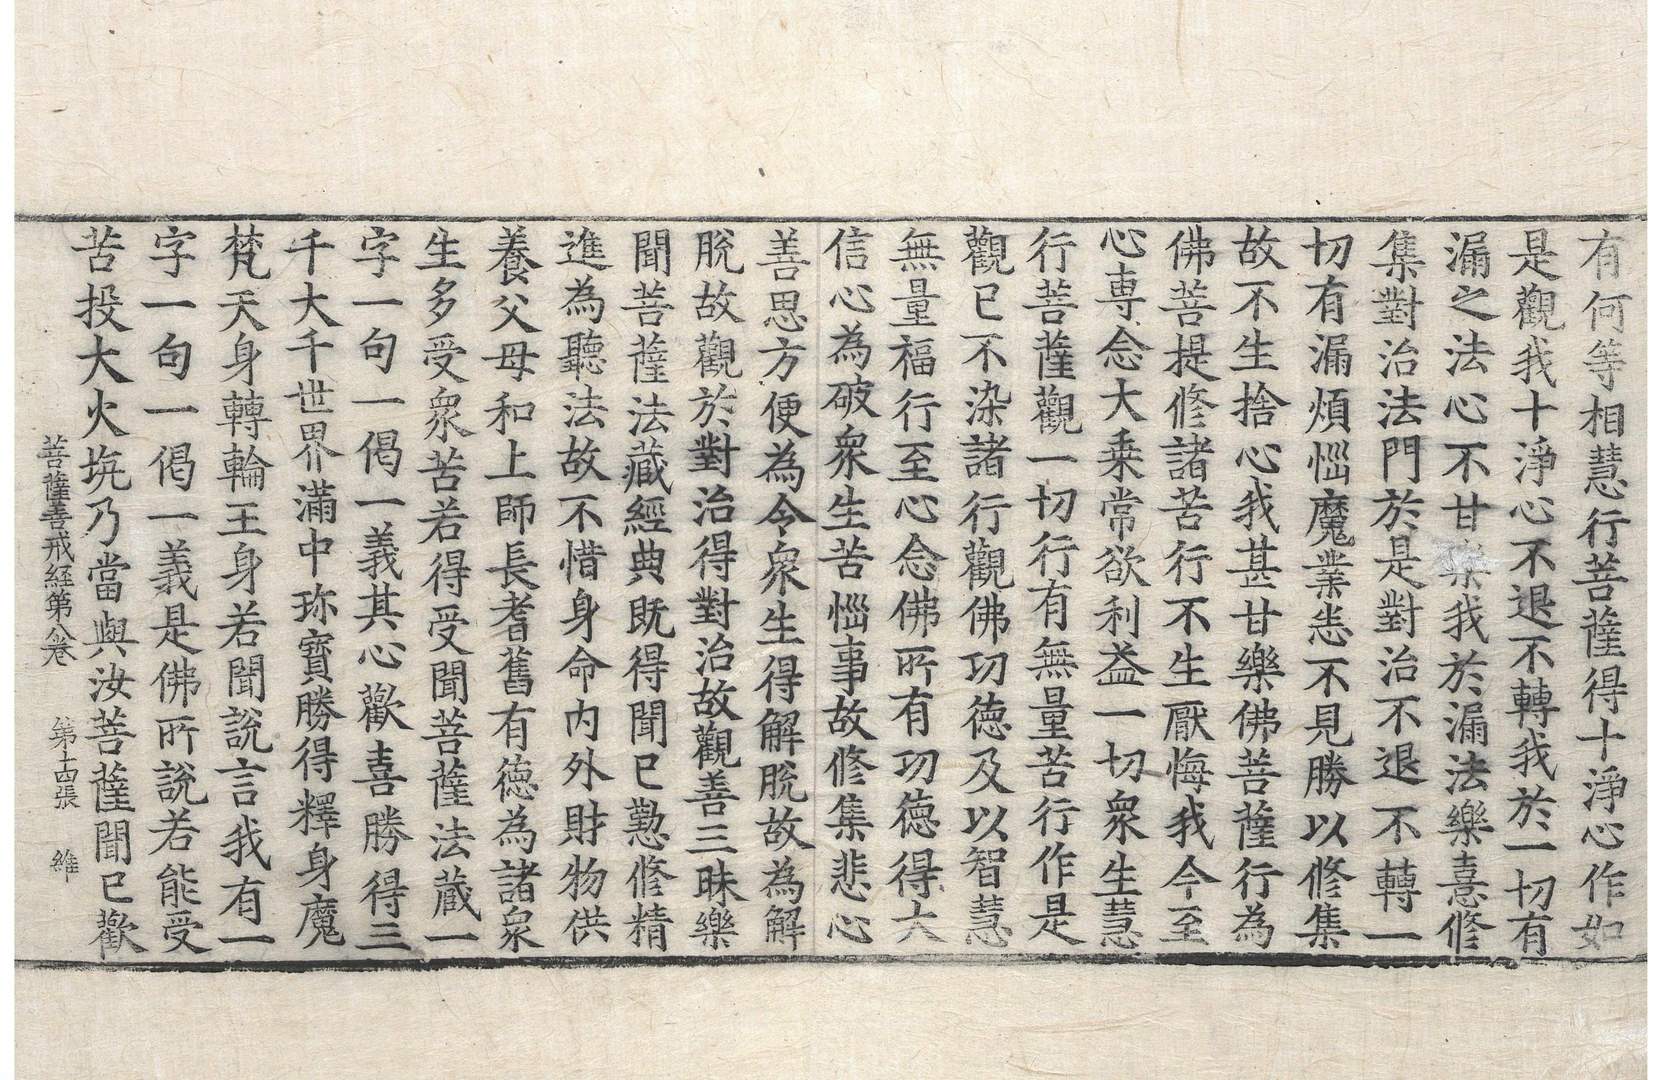 有何等相慧行菩薩得十淨心作如
是觀我十淨心不退不轉我於一切有
漏之法心不甘樂我於漏法樂憙修
集對治法門於是對治不退不轉一
切有漏煩惱魔業恙不見勝以修集
故不生捨心我甚甘樂佛菩薩行為
佛菩提修諸苦行不生厭悔我今至
心専念大乗常欲利益一切眾生慧
行菩薩觀一切行有無量苦行作是
觀已不染諸行觀佛功徳及以智慧
無量福行至心念佛所有功徳得大
信心為破眾生苦惱事故修集悲心
善思方便為令眾生得解脫故為解
脫故觀於對治得對治故觀善三昧樂
聞菩薩法藏經典既得聞已懃修精
進為聽法故不惜身命内外財物供
養父母和上師長耆舊有徳為諸眾
生多受眾苦若得受聞菩薩法藏一
字一句一偈一義其心歡喜勝得三
千大千世界滿中珎寶勝得釋身魔
梵天身轉輪王身若聞說言我有一
字一句一偈一義是佛所說若能受
苦投大火坑乃當與汝菩薩聞已歡
菩薩善戒経第八卷 第十四張 維